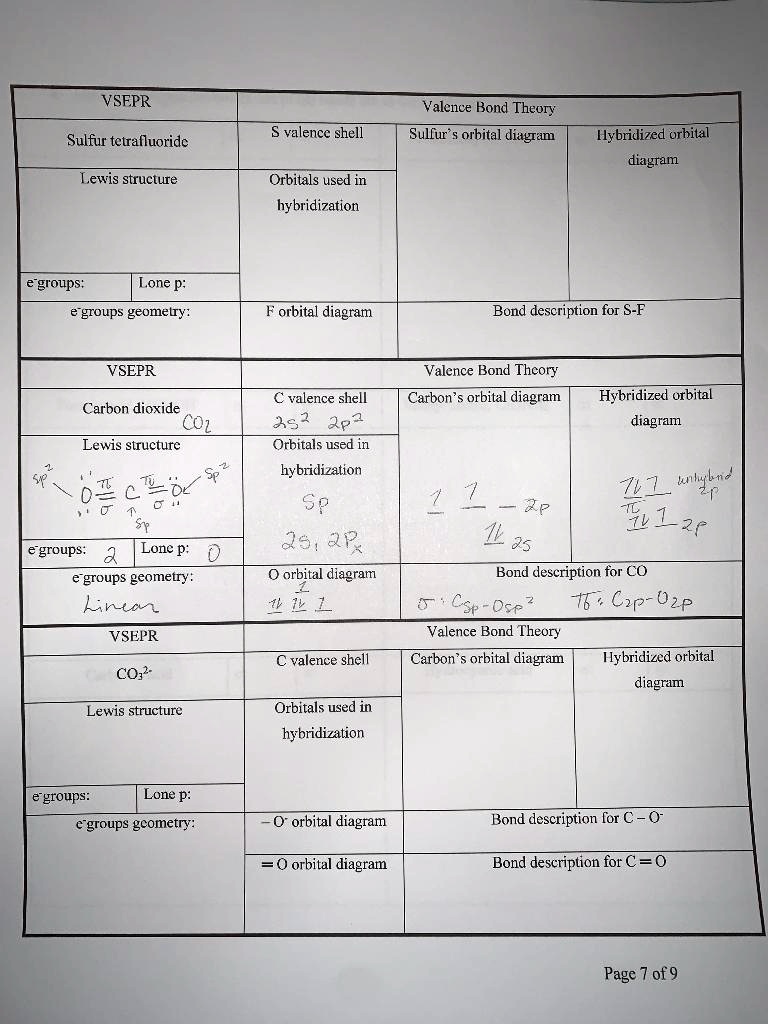 VSEPR
Valence Bond Theory
Sulfur tetrafluoride
S valence shell
Sulfur's orbital diagram
Hybridized orbital
diagram
Lewis structure
Orbitals used in
hybridization
e⁻groups:
Lone p:
e⁻groups geometry:
F orbital diagram
Bond description for S-F
VSEPR
Valence Bond Theory
Carbon dioxide CO₂
C valence shell
2s² 2p²
Carbon's orbital diagram
Hybridized orbital
diagram
Lewis structure
sp² O = C = O sp²
π π
σ σ
sp
Orbitals used in
hybridization
sp
2s, 2Pₓ
1 1 _ 2p
1l 2s
1l 1 unhybrid
2p
π
1l 1 2p
e⁻groups: 2
Lone p: 0
e⁻groups geometry:
Linear
O orbital diagram
1
1l 1l 1
Bond description for CO
σ: Csp-Osp² π: C2p-O2p
VSEPR
Valence Bond Theory
CO₃²⁻
C valence shell
Carbon's orbital diagram
Hybridized orbital
diagram
Lewis structure
Orbitals used in
hybridization
e⁻groups:
Lone p:
e⁻groups geometry:
– O⁻ orbital diagram
Bond description for C – O⁻
= O orbital diagram
Bond description for C = O
Page 7 of 9